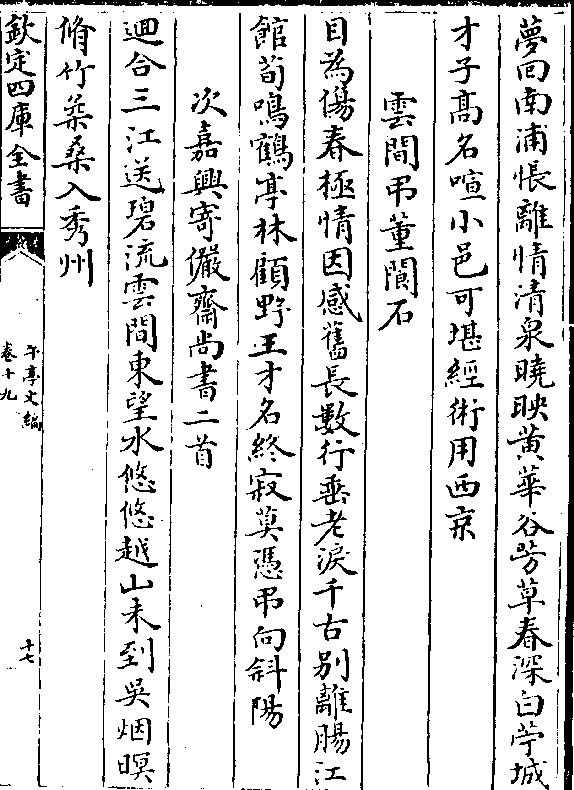 夢回南浦悵離情清泉曉映黄華谷芳草春深白苧城
才子髙名喧小邑可堪經術用西京
雲間弔董閬石
目為傷春極情因感舊長數行垂老淚千古别離腸江
館荀鳴鶴亭林顧野王才名終寂莫憑弔向斜陽
次嘉興寄儼齋尚書二首
迴合三江送碧流雲間東望水悠悠越山未到吳烟暝
脩竹柔桑入秀州
欽定四庫全書
午亭文編
卷十九
十七